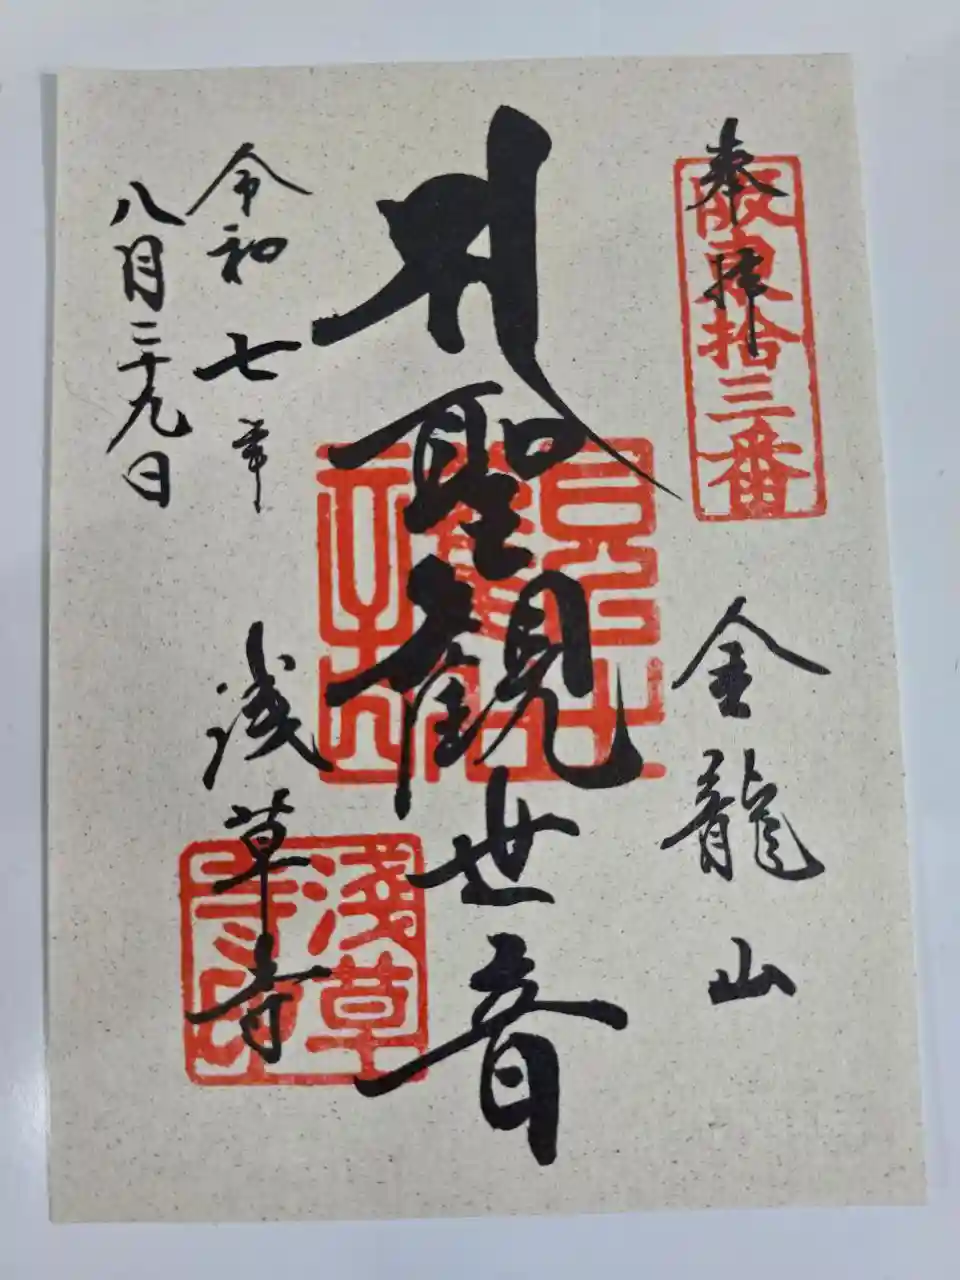 奉拝
阪東拾三番
金龍山
聖観世音
浅草寺
淺草寺印
令和七年
八月二十九日